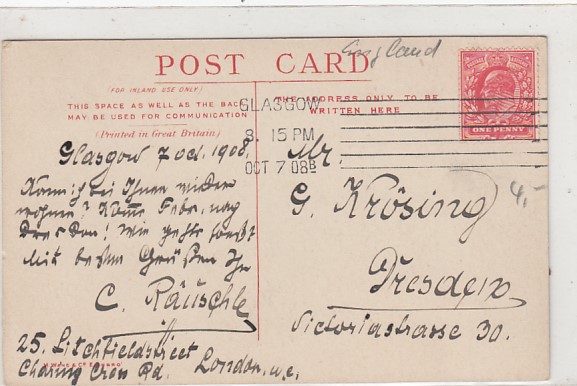 England
POST CARD
(FOR INLAND USE ONLY)
THIS SPACE AS WELL AS THE BACK
MAY BE USED FOR COMMUNICATION
(Printed in Great Britain)
THE ADDRESS ONLY TO BE
WRITTEN HERE
GLASGOW
8. 15 PM
OCT 7 08
ONE PENNY
Glasgow 7 oct. 1908.
Kann ich bei Ihnen wieder
wohnen? Komme Febr. nach
Dresden! Wie geht's sonst
Mit besten Grüßen Ihr
C. Räuschle
25. Litchfieldstreet
Charing Cross Rd. London. w.c.
Mr.
G. Krösing
Dresden
Victoriastrasse 30.
4,-